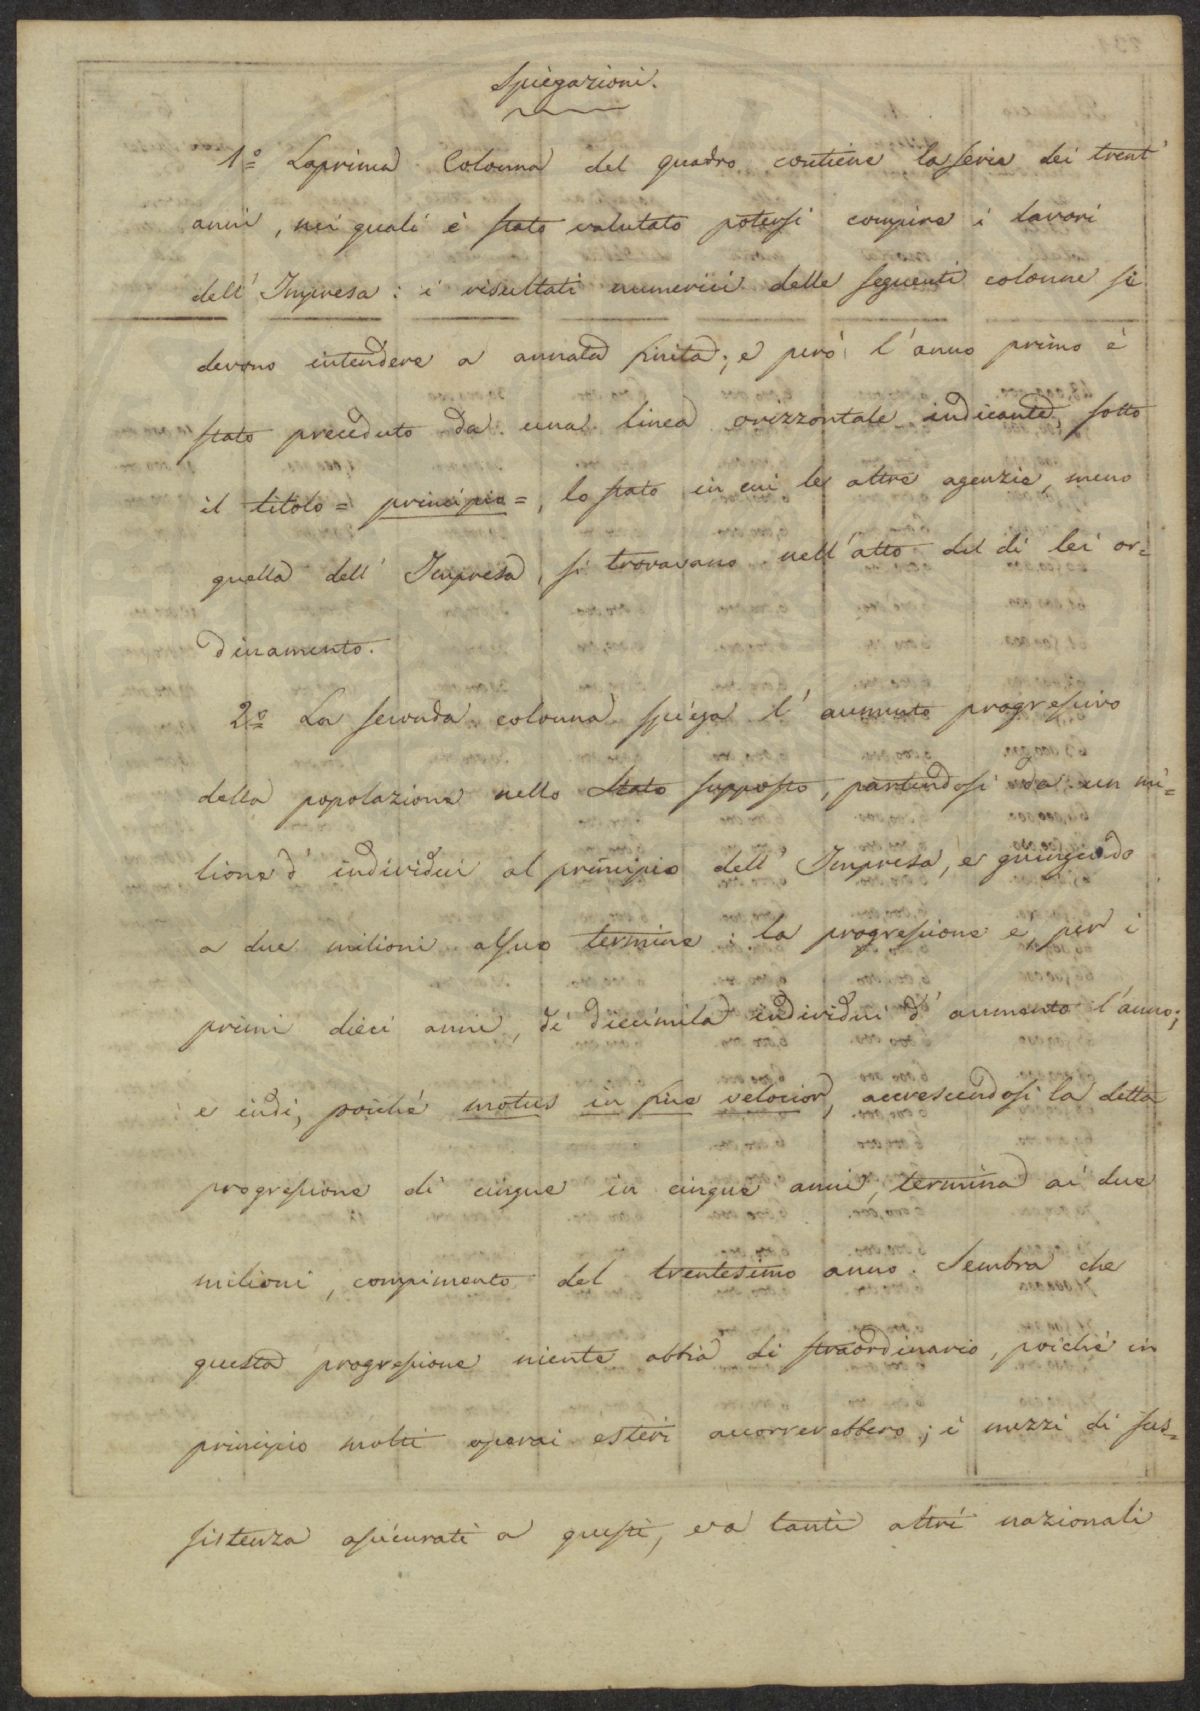 Spiegazioni.
1.º La prima Colonna del quadro contiene la serie dei trent'
anni, nei quali è stato valutato potersi compire i lavori
dell'Impresa: i risultati numerici delle seguenti colonne si
devono intendere a annata finita; e però l'anno primo è
stato preceduto da una linea orizzontale indicante, sotto
il titolo = principio =, lo stato in cui le altre agenzie, meno
quella dell'Impresa, si trovavano nell'atto del di lei or=
dinamento.
2.º La seconda colonna spiega l'aumento progressivo
della popolazione nello Stato supposto, partendosi da un mi=
lione d'individui al principio dell'Impresa, e giungendo
a due milioni al suo termine: la progressione e, per i
primi dieci anni, di diecimila individui d'aumento l'anno;
e indi, poiché motus in fine velocior, accrescendosi la detta
progressione di cinque in cinque anni, termina ai due
milioni, compimento del trentesimo anno. Sembra che
questa progressione niente abbia di straordinario, poiché in
principio molti operai esteri accorrerebbero; i mezzi di sus=
sistenza assicurati a questi, e a tanti altri nazionali